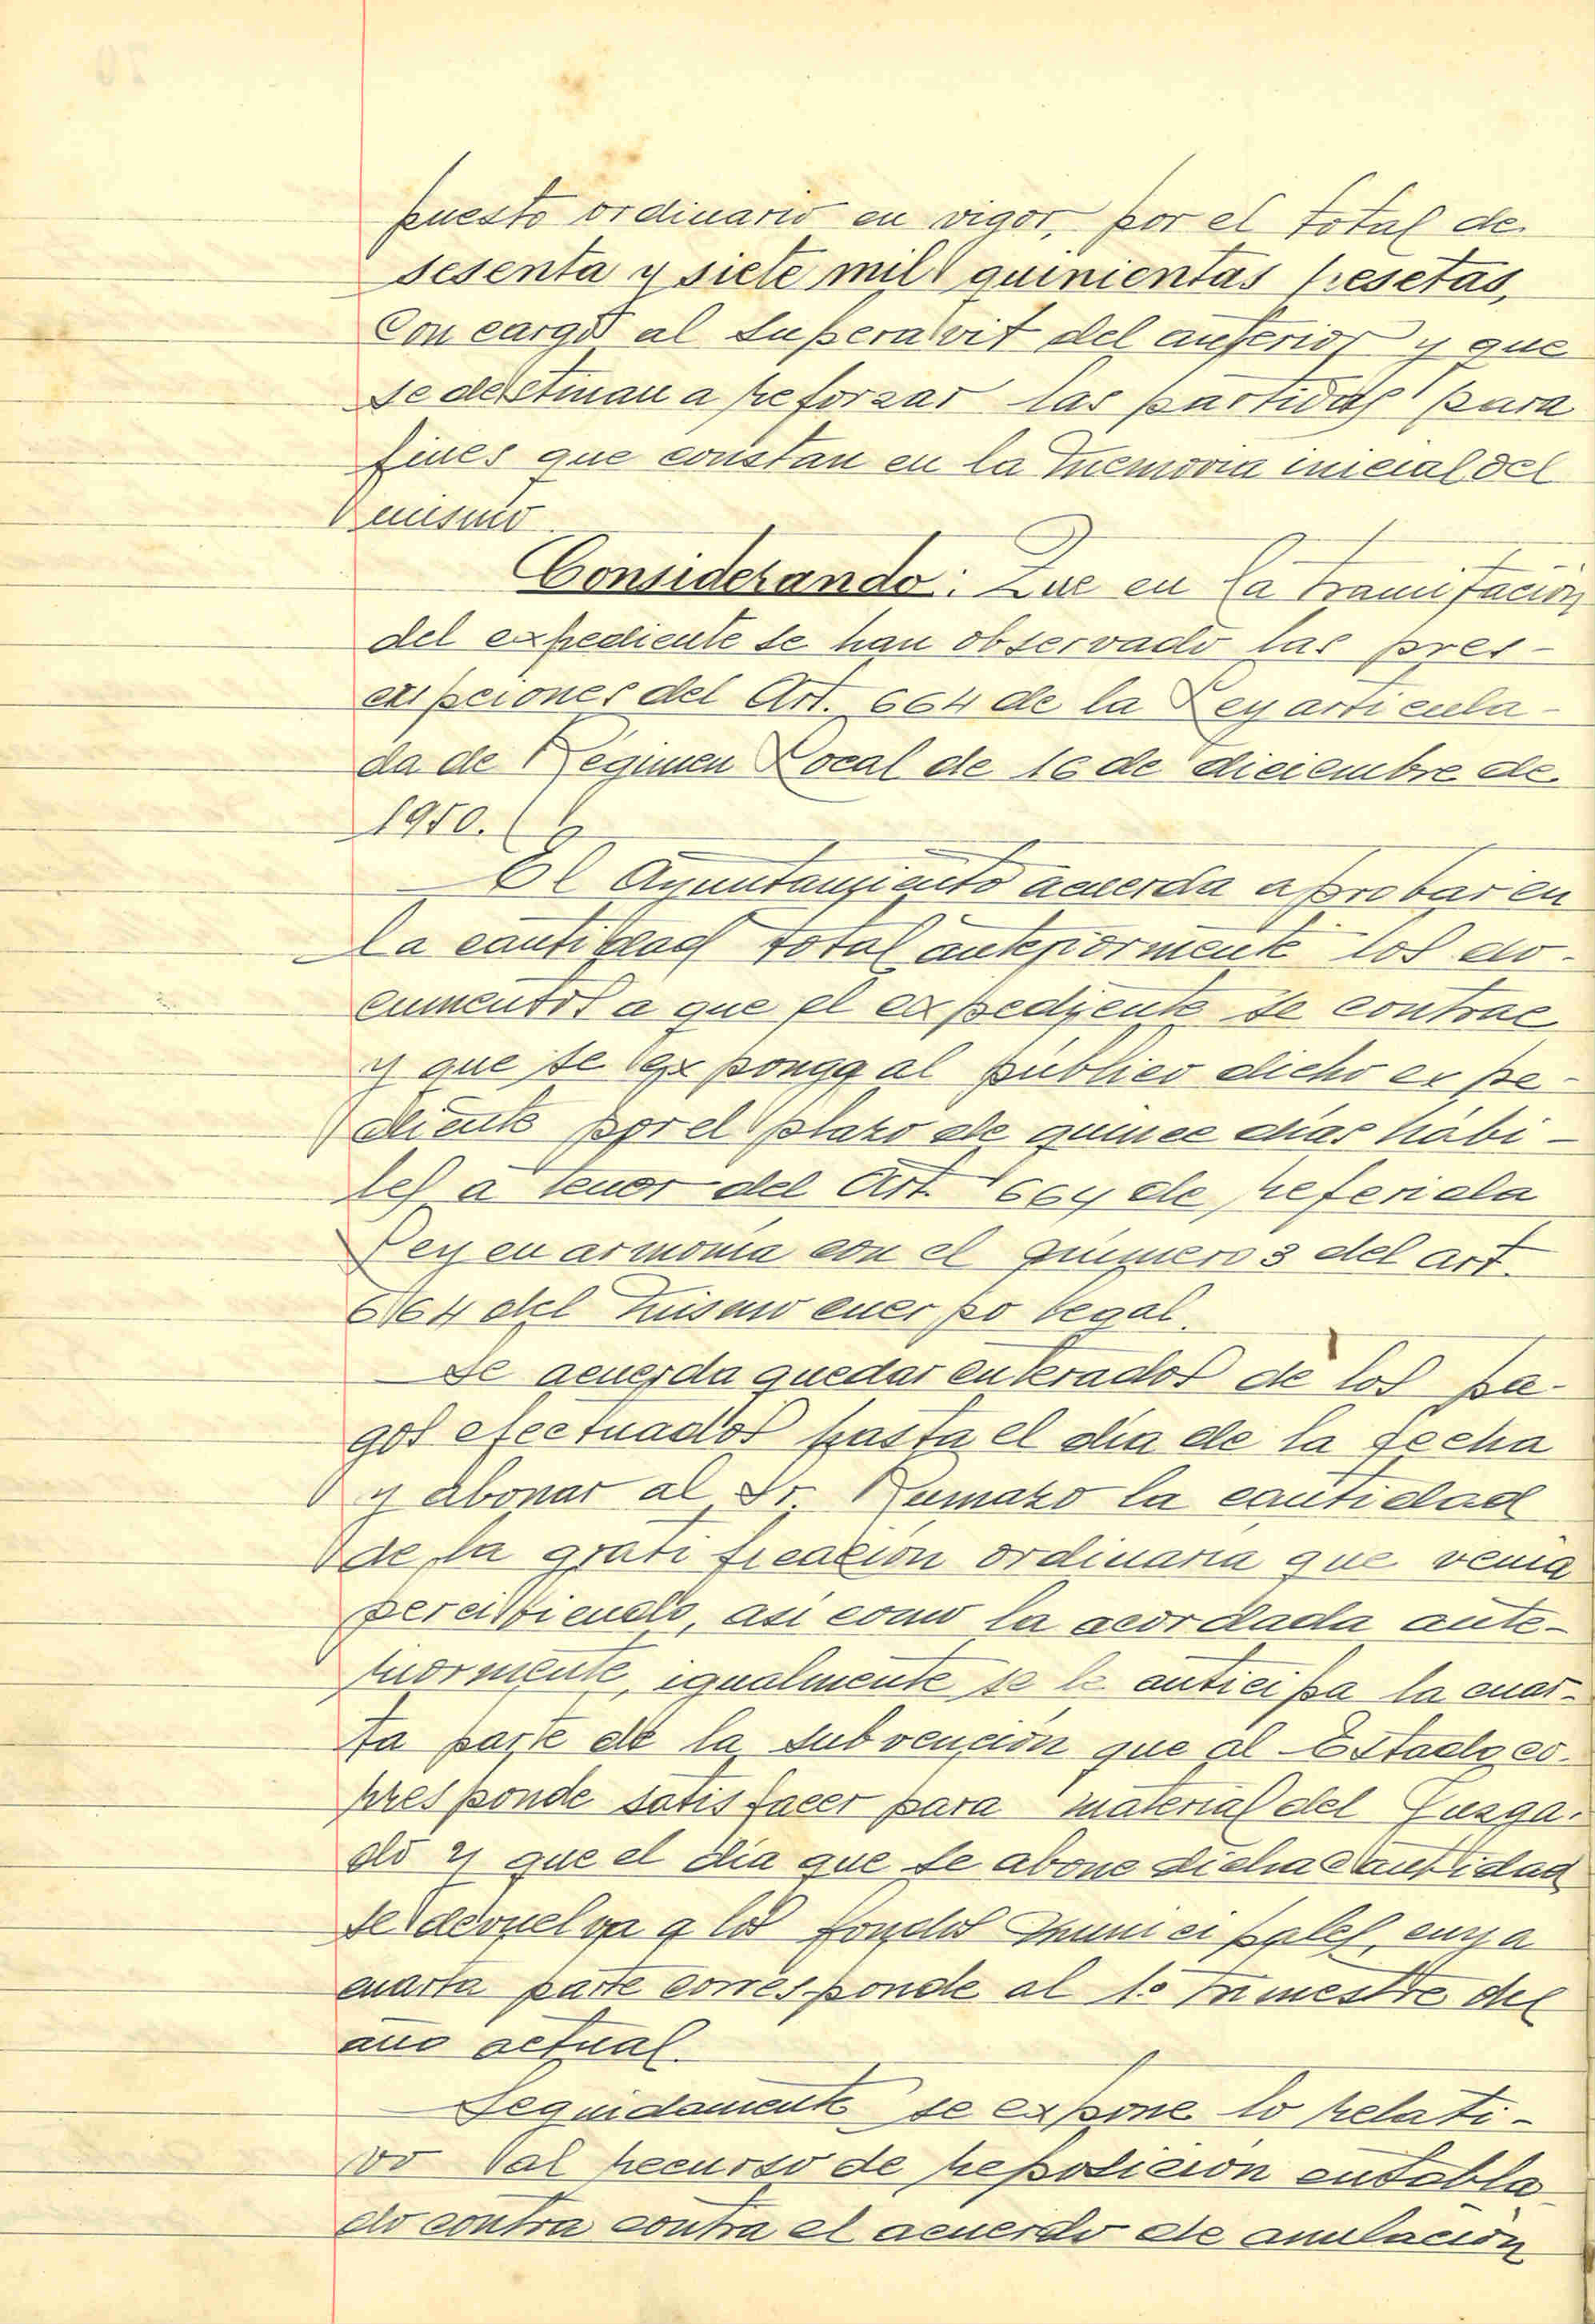 puesto ordinario en vigor, por el total de
sesenta y siete mil quinientas pesetas,
Con cargo al Superavit del anterior y que
se destinan a reforzar las partidas para
fines que constan en la Memoria inicial del
mismo.
Considerando: Que en la tramitación
del expediente se han observado las pres-
cripciones del Art. 664 de la Ley articula-
da de Régimen Local de 16 de diciembre de
1950.
El Ayuntamiento acuerda aprobar en
la cantidad total anteriormente los do-
cumentos a que el expediente se contrae
y que se exponga al público dicho expe-
diente por el plazo de quince días hábi-
les a tenor del Art. 664 de referida
Ley en armonía con el número 3 del art.
664 del mismo cuerpo legal.
Se acuerda quedar enterados de los pa-
gos efectuados hasta el día de la fecha
y abonar al Sr. Rumazo la cantidad
de la gratificación ordinaria que venía
percibiendo, asi como la acordada ante-
riormente, igualmente se le anticipa la cuar-
ta parte de la subvención que al Estado co-
rresponde satisfacer para material del Juzga-
do y que el día que se abone dicha cantidad
se devuelva a los fondos municipales, cuya
cuarta parte corresponde al 1º trimestre del
año actual.
Seguidamente se expone lo relati-
vo al recurso de reposición entabla
do contra contra el acuerdo de anulación